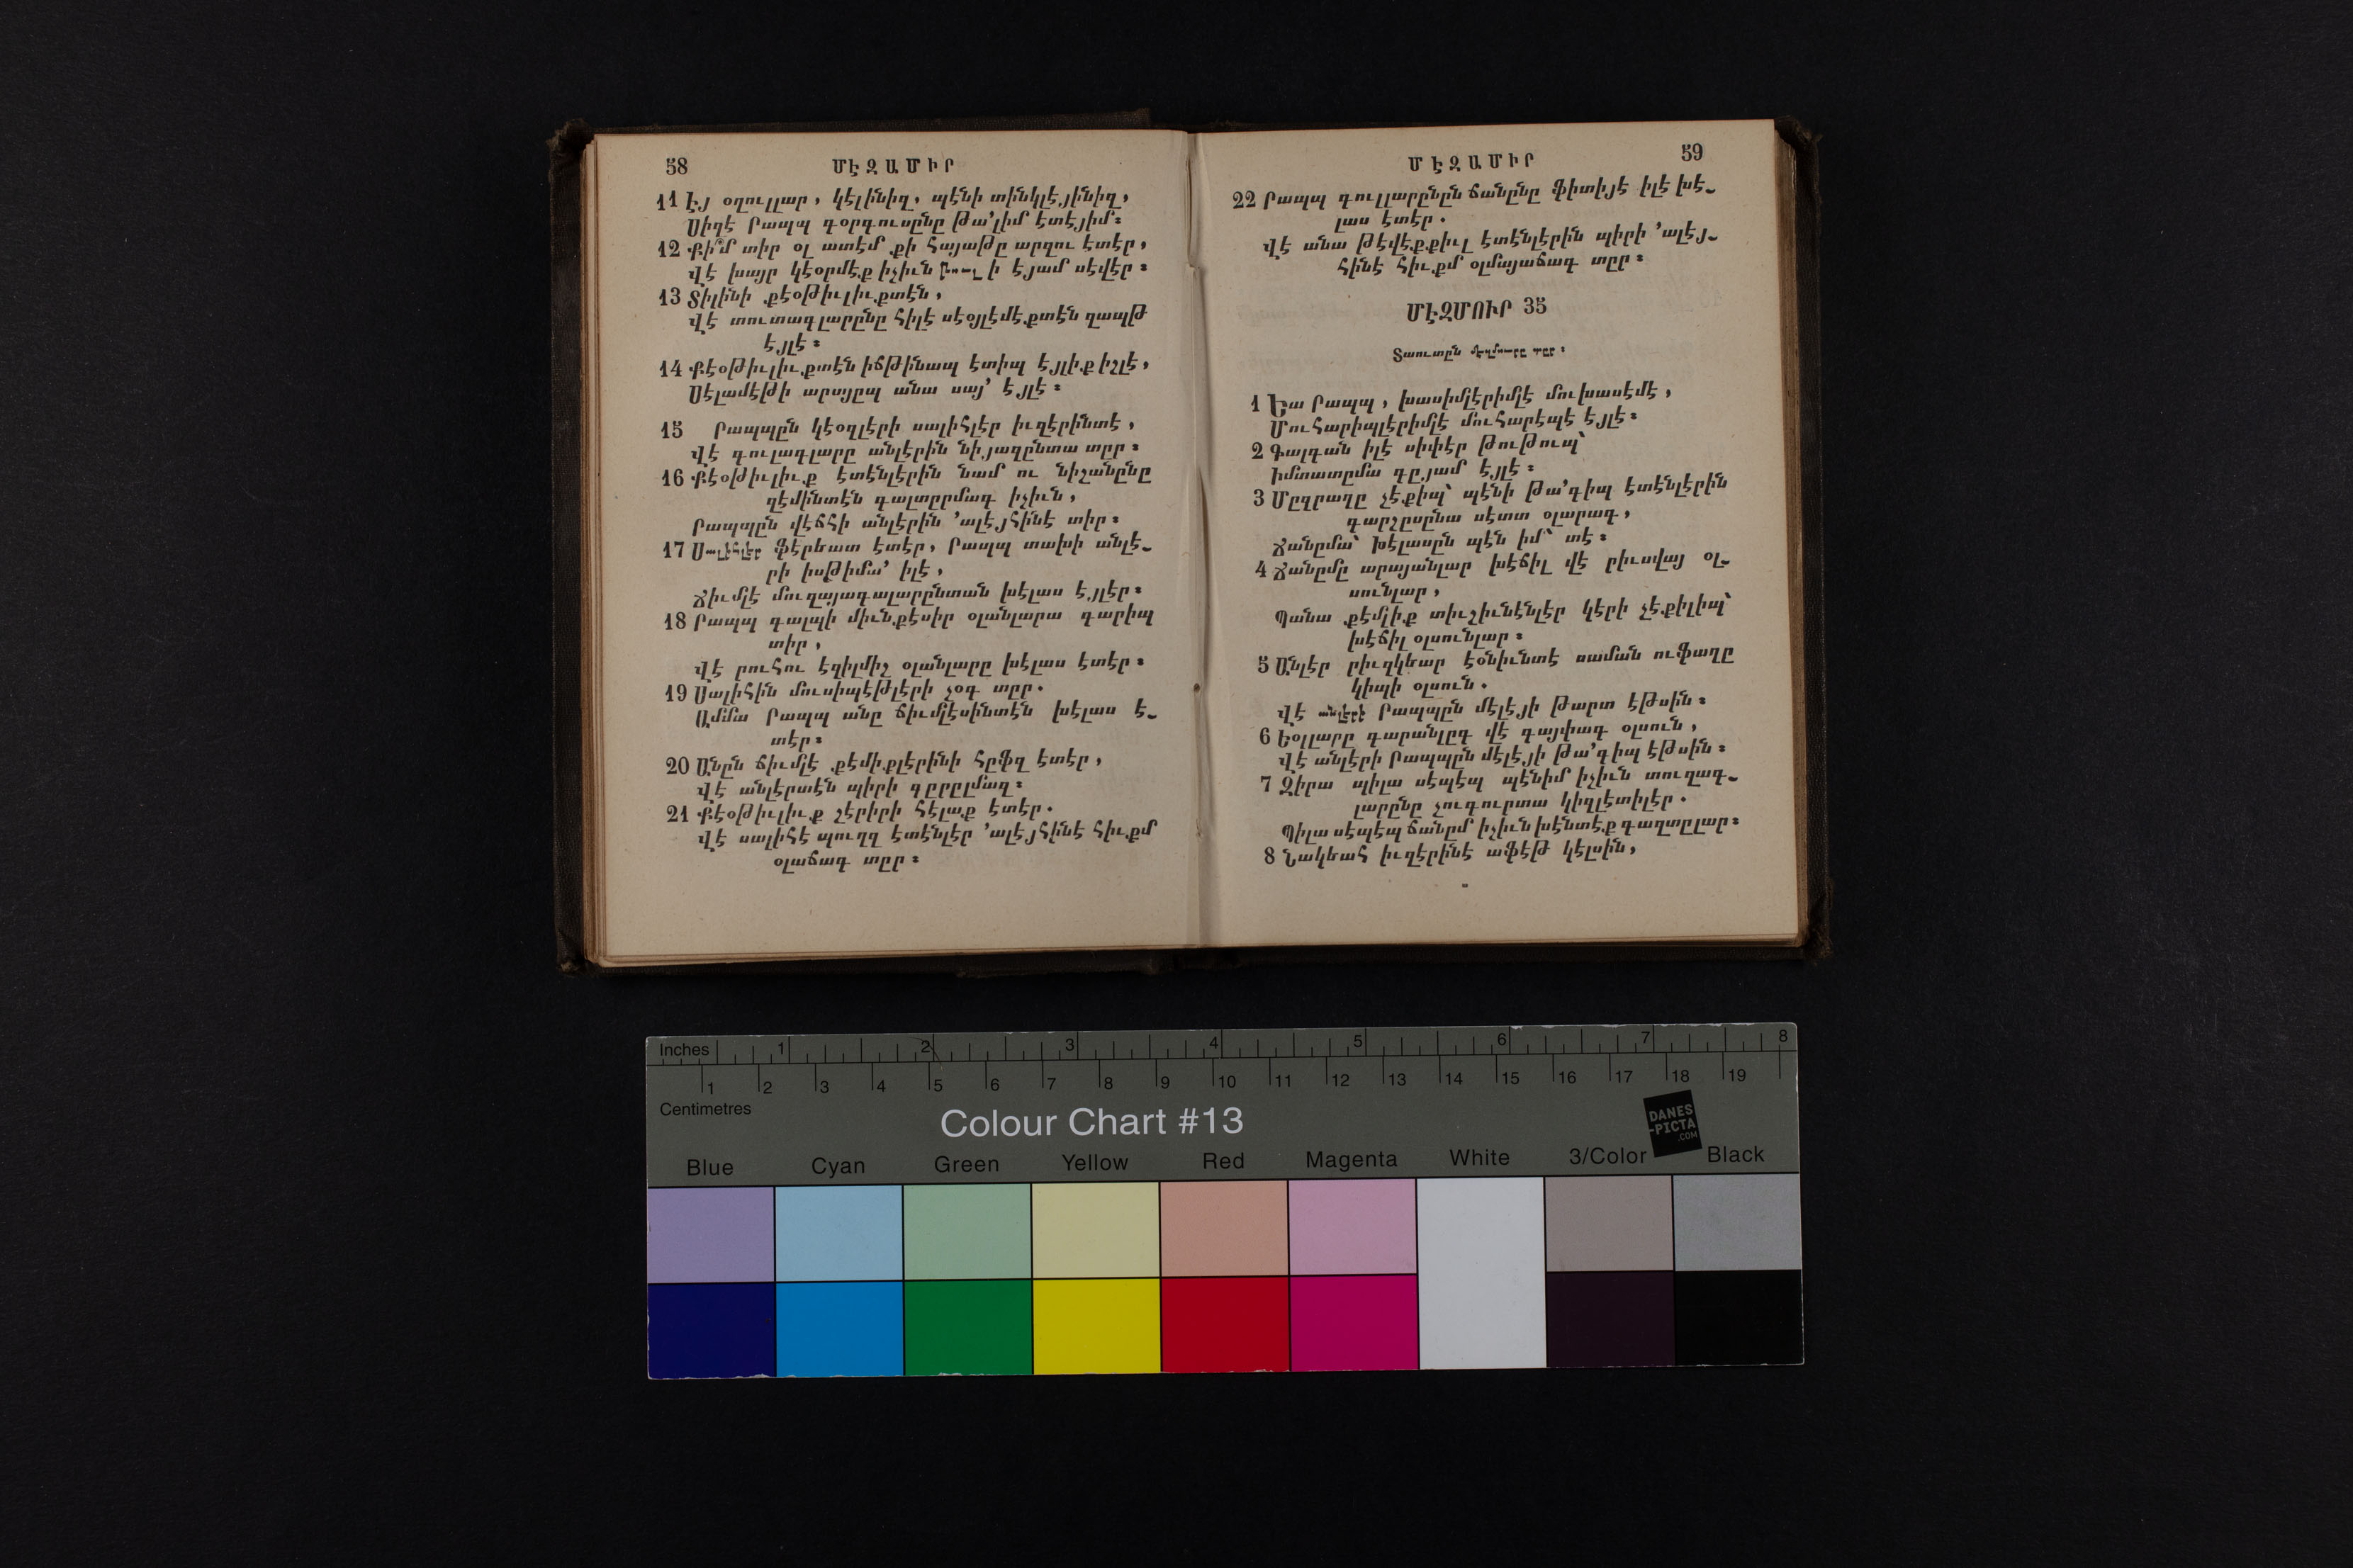 58 ՄԷԶԱՄԻՐ
11 Էյ օղուլլար, կէլինիզ, պէնի տինկլէյինիզ,
Սիզէ Րապպ գօրգուսընը թա՛լիմ էտէյիմ։
12 Քի՞մ տիր օլ ատէմ քի հայաթը արզու էտէր,
Վէ խայր կէօրմէք իչիւն թուլ ի էյամ սէվէր։
13 Տիլինի քէօթիւլիւքտէն,
Վէ տուտագլարընը հիլէ սէօյլէմէքտէն զապթ
էյլէ։
14 Քէօթիւլիւքտէն իճթինապ էտիպ էյլիք իշլէ,
Սէլամէթի արայըպ անա սայ՛ էյլէ։
15 Րապպըն կէօզլէրի սալիհլէր իւզէրինտէ,
Վէ գուլագլարը անլէրին նիյազընտա տըր։
16 Քէօթիւլիւք էտէնլէրին նամ ու նիշանընը
զէմինտէն գալտըրմագ իչիւն,
Րապպըն վէճհի անլէրին ՛ալէյհինէ տիր։
17 Սալիհլէր ֆէրեատ էտէր, Րապպ տախի անլէ-
րի իսթիմա՛ իլէ,
Ճիւմլէ մուզայագալարընտան խէլաս էյլէր։
18 Րապպ գալպի միւնքէսիր օլանլարա գարիպ
տիր,
Վէ րուհու էզիլմիշ օլանլարը խէլաս էտէր։
19 Սալիհին մուսիպէթլէրի չօգ տըր.
Ամմա Րապպ անը ճիւմլէսինտէն խէլաս է-
տէր։
20 Անըն ճիւմլէ քէմիքլէրինի հըֆզ էտէր,
Վէ անլէրտէն պիրի գըրըլմազ։
21 Քէօթիւլիւք շէրիրի հէլաք էտէր.
Վէ սալիհէ պուղզ էտէնլէր ՛ալէյհինէ հիւքմ
օլաճագ տըր։
ՄԷԶԱՄԻՐ 59
22 Րապպ գուլլարընըն ճանընը ֆիտիյէ իլէ խէ-
լաս էտէր.
Վէ անա թէվէքքիւլ էտէնլէրին պիրի ՛ալէյ-
հինէ հիւքմ օլմայաճագ տըր։
ՄԷԶՄՈՒՐ 35
Տաուտըն մէզմուրը տըր։
1 Եա Րապպ, խասիմլէրիմլէ մուխասէմէ,
Մուհարիպլէրիմլէ մուհարէպէ էյլէ։
2 Գալգան իլէ սիփէր թութուպ՝
իմտատըմա գըյամ էյլէ։
3 Մըզրաղը չէքիպ՝ պէնի թա՛գիպ էտէնլէրին
գարշըսընա սէտտ օլարագ,
Ճանըմա՝ Խէլասըն պէն իմ՝ տէ։
4 Ճանըմը արայանլար խէճիլ վէ րիւսվայ օլ-
սունլար,
Պանա քէմլիք տիւշիւնէնլէր կէրի չէքիլիպ՝
խէճիլ օլսունլար։
5 Անլէր րիւզկեար էօնիւնտէ սաման ուֆաղը
կիպի օլսուն.
Վէ անլէրի Րապպըն մէլէյի թարտ էթսին։
6 Եօլլարը գարանլըգ վէ գայփագ օլսուն,
Վէ անլէրի Րապպըն մէլէյի թա՛գիպ էթսին։
7 Զիրա պիլա սէպէպ պէնիմ իչիւն տուզագ-
լարընը չուգուրտա կիզլէտիլէր.
Պիլա սէպէպ ճանըմ իչիւն խէնտէք գազտըլար։
8 Նակեահ իւզէրինէ աֆէթ կէլսին,
Inches 1 2 3 4 5 6 7 8
1 2 3 4 5 6 7 8 9 10 11 12 13 14 15 16 17 18 19
Centimetres
Colour Chart #13
DANES
-PICTA
.COM
Blue Cyan Green Yellow Red Magenta White 3/Color Black